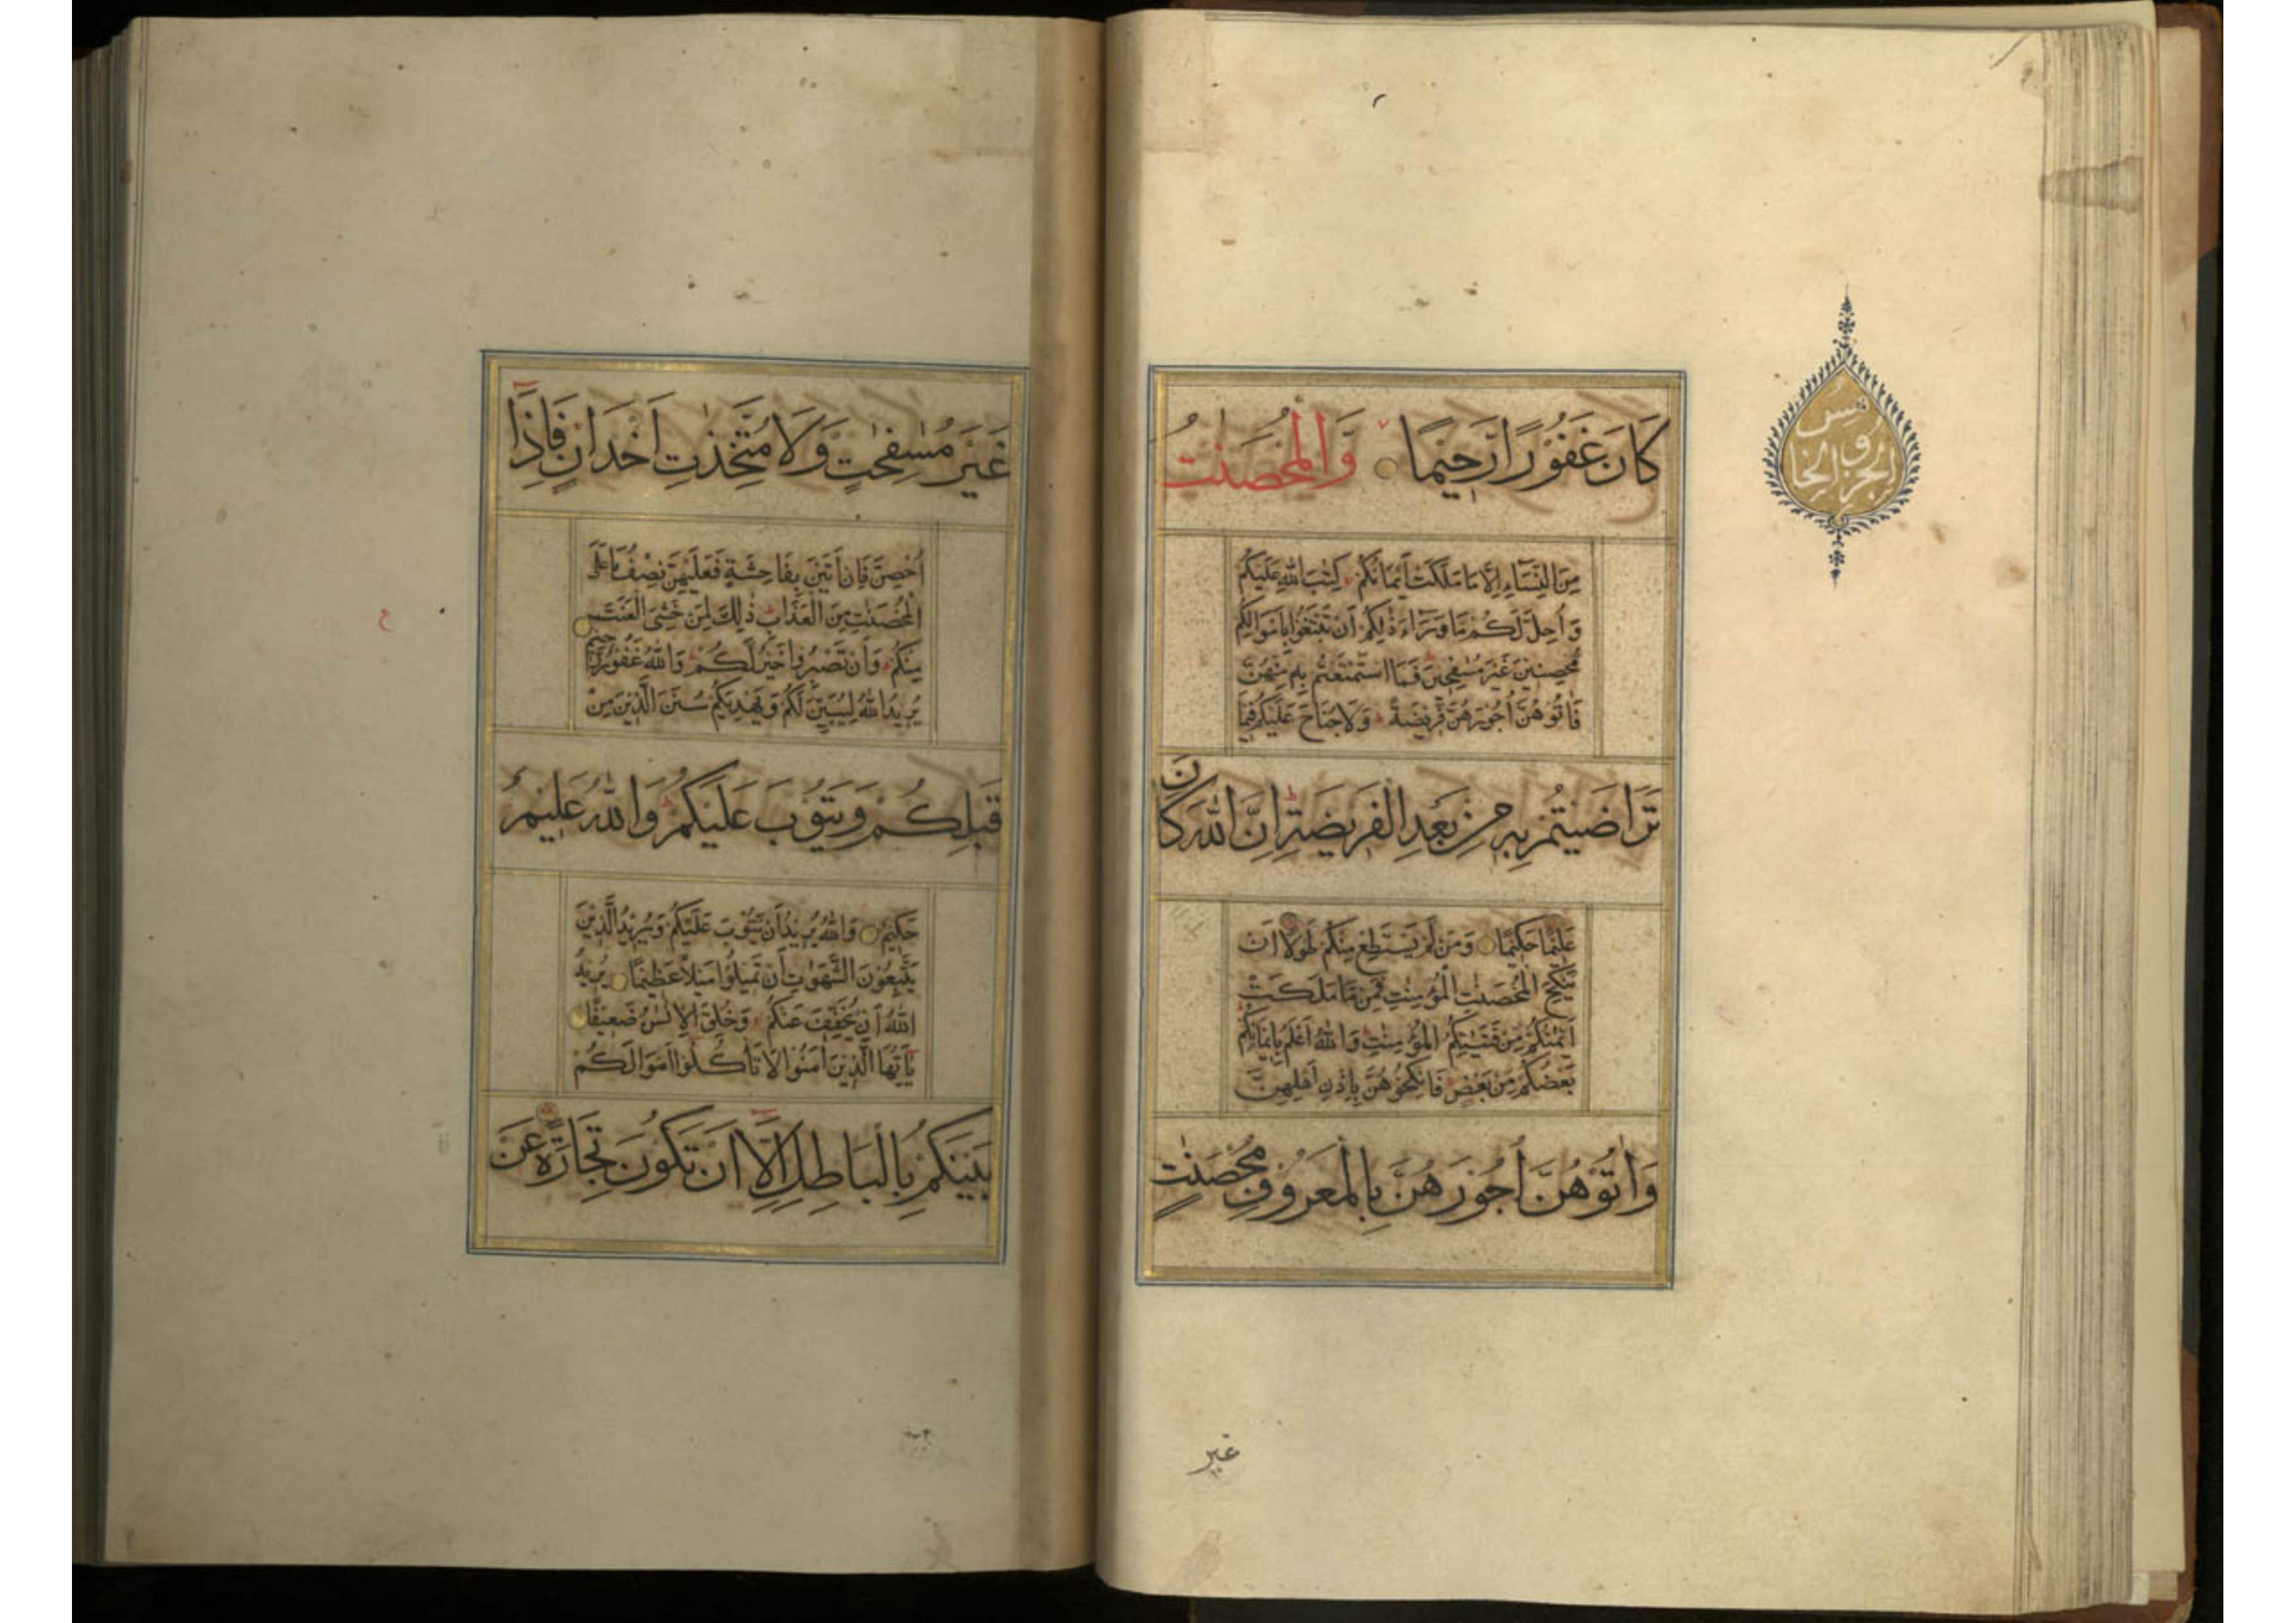 الجزو الخامس
كَانَ غَفُوْرًا رَّحِيْمًا وَّالْمُحْصَنٰتُ
مِنَ النِّسَآءِ اِلَّا مَا مَلَكَتْ اَيْمَانُكُمْ كِتٰبَ اللّٰهِ عَلَيْكُمْ
وَ اُحِلَّ لَكُمْ مَّا وَرَآءَ ذٰلِكُمْ اَنْ تَبْتَغُوْا بِاَمْوَالِكُمْ
مُّحْصِنِيْنَ غَيْرَ مُسٰفِحِيْنَ فَمَا اسْتَمْتَعْتُمْ بِهٖ مِنْهُنَّ
فَاٰتُوْهُنَّ اُجُوْرَهُنَّ فَرِيْضَةً وَ لَا جُنَاحَ عَلَيْكُمْ فِيْمَا
تَرَاضَيْتُمْ بِهٖ مِنْ بَعْدِ الْفَرِيْضَةِ اِنَّ اللّٰهَ كَانَ
عَلِيْمًا حَكِيْمًا وَمَنْ لَّمْ يَسْتَطِعْ مِنْكُمْ طَوْلًا اَنْ
يَّنْكِحَ الْمُحْصَنٰتِ الْمُؤْمِنٰتِ فَمِنْ مَّا مَلَكَتْ
اَيْمٰنُكُمْ مِّنْ فَتَيٰتِكُمُ الْمُؤْمِنٰتِ وَاللّٰهُ اَعْلَمُ بِاِيْمَانِكُمْ
بَعْضُكُمْ مِّنْ بَعْضٍ فَانْكِحُوْهُنَّ بِاِذْنِ اَهْلِهِنَّ
وَاٰتُوْهُنَّ اُجُوْرَهُنَّ بِالْمَعْرُوْفِ مُحْصَنٰتٍ
غير
غَيْرَ مُسٰفِحٰتٍ وَّلَا مُتَّخِذٰتِ اَخْدَانٍ فَاِذَآ
اُحْصِنَّ فَاِنْ اَتَيْنَ بِفَاحِشَةٍ فَعَلَيْهِنَّ نِصْفُ مَا عَلَى
الْمُحْصَنٰتِ مِنَ الْعَذَابِ ذٰلِكَ لِمَنْ خَشِيَ الْعَنَتَ
مِنْكُمْ وَاَنْ تَصْبِرُوا خَيْرٌ لَّكُمْ وَاللّٰهُ غَفُوْرٌ رَّحِيْمٌ
يُرِيْدُ اللّٰهُ لِيُبَيِّنَ لَكُمْ وَيَهْدِيَكُمْ سُنَنَ الَّذِيْنَ مِنْ
قَبْلِكُمْ وَيَتُوْبَ عَلَيْكُمْ وَاللّٰهُ عَلِيْمٌ
حَكِيْمٌ وَاللّٰهُ يُرِيْدُ اَنْ يَّتُوْبَ عَلَيْكُمْ وَيُرِيْدُ الَّذِيْنَ
يَتَّبِعُوْنَ الشَّهَوٰتِ اَنْ تَمِيْلُوْا مَيْلًا عَظِيْمًا يُرِيْدُ
اللّٰهُ اَنْ يُّخَفِّفَ عَنْكُمْ وَخُلِقَ الْاِنْسٰنُ ضَعِيْفًا
يٰٓاَيُّهَا الَّذِيْنَ اٰمَنُوْا لَا تَاْكُلُوْا اَمْوَالَكُمْ
بَيْنَكُمْ بِالْبَاطِلِ اِلَّآ اَنْ تَكُوْنَ تِجَارَةً عَنْ
ع